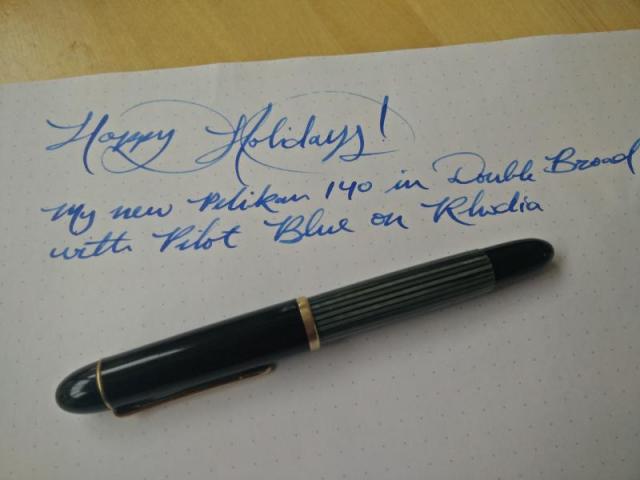 Happy Holidays!
My new Pelikan 140 in Double Broad
with Pilot Blue on Rhodia